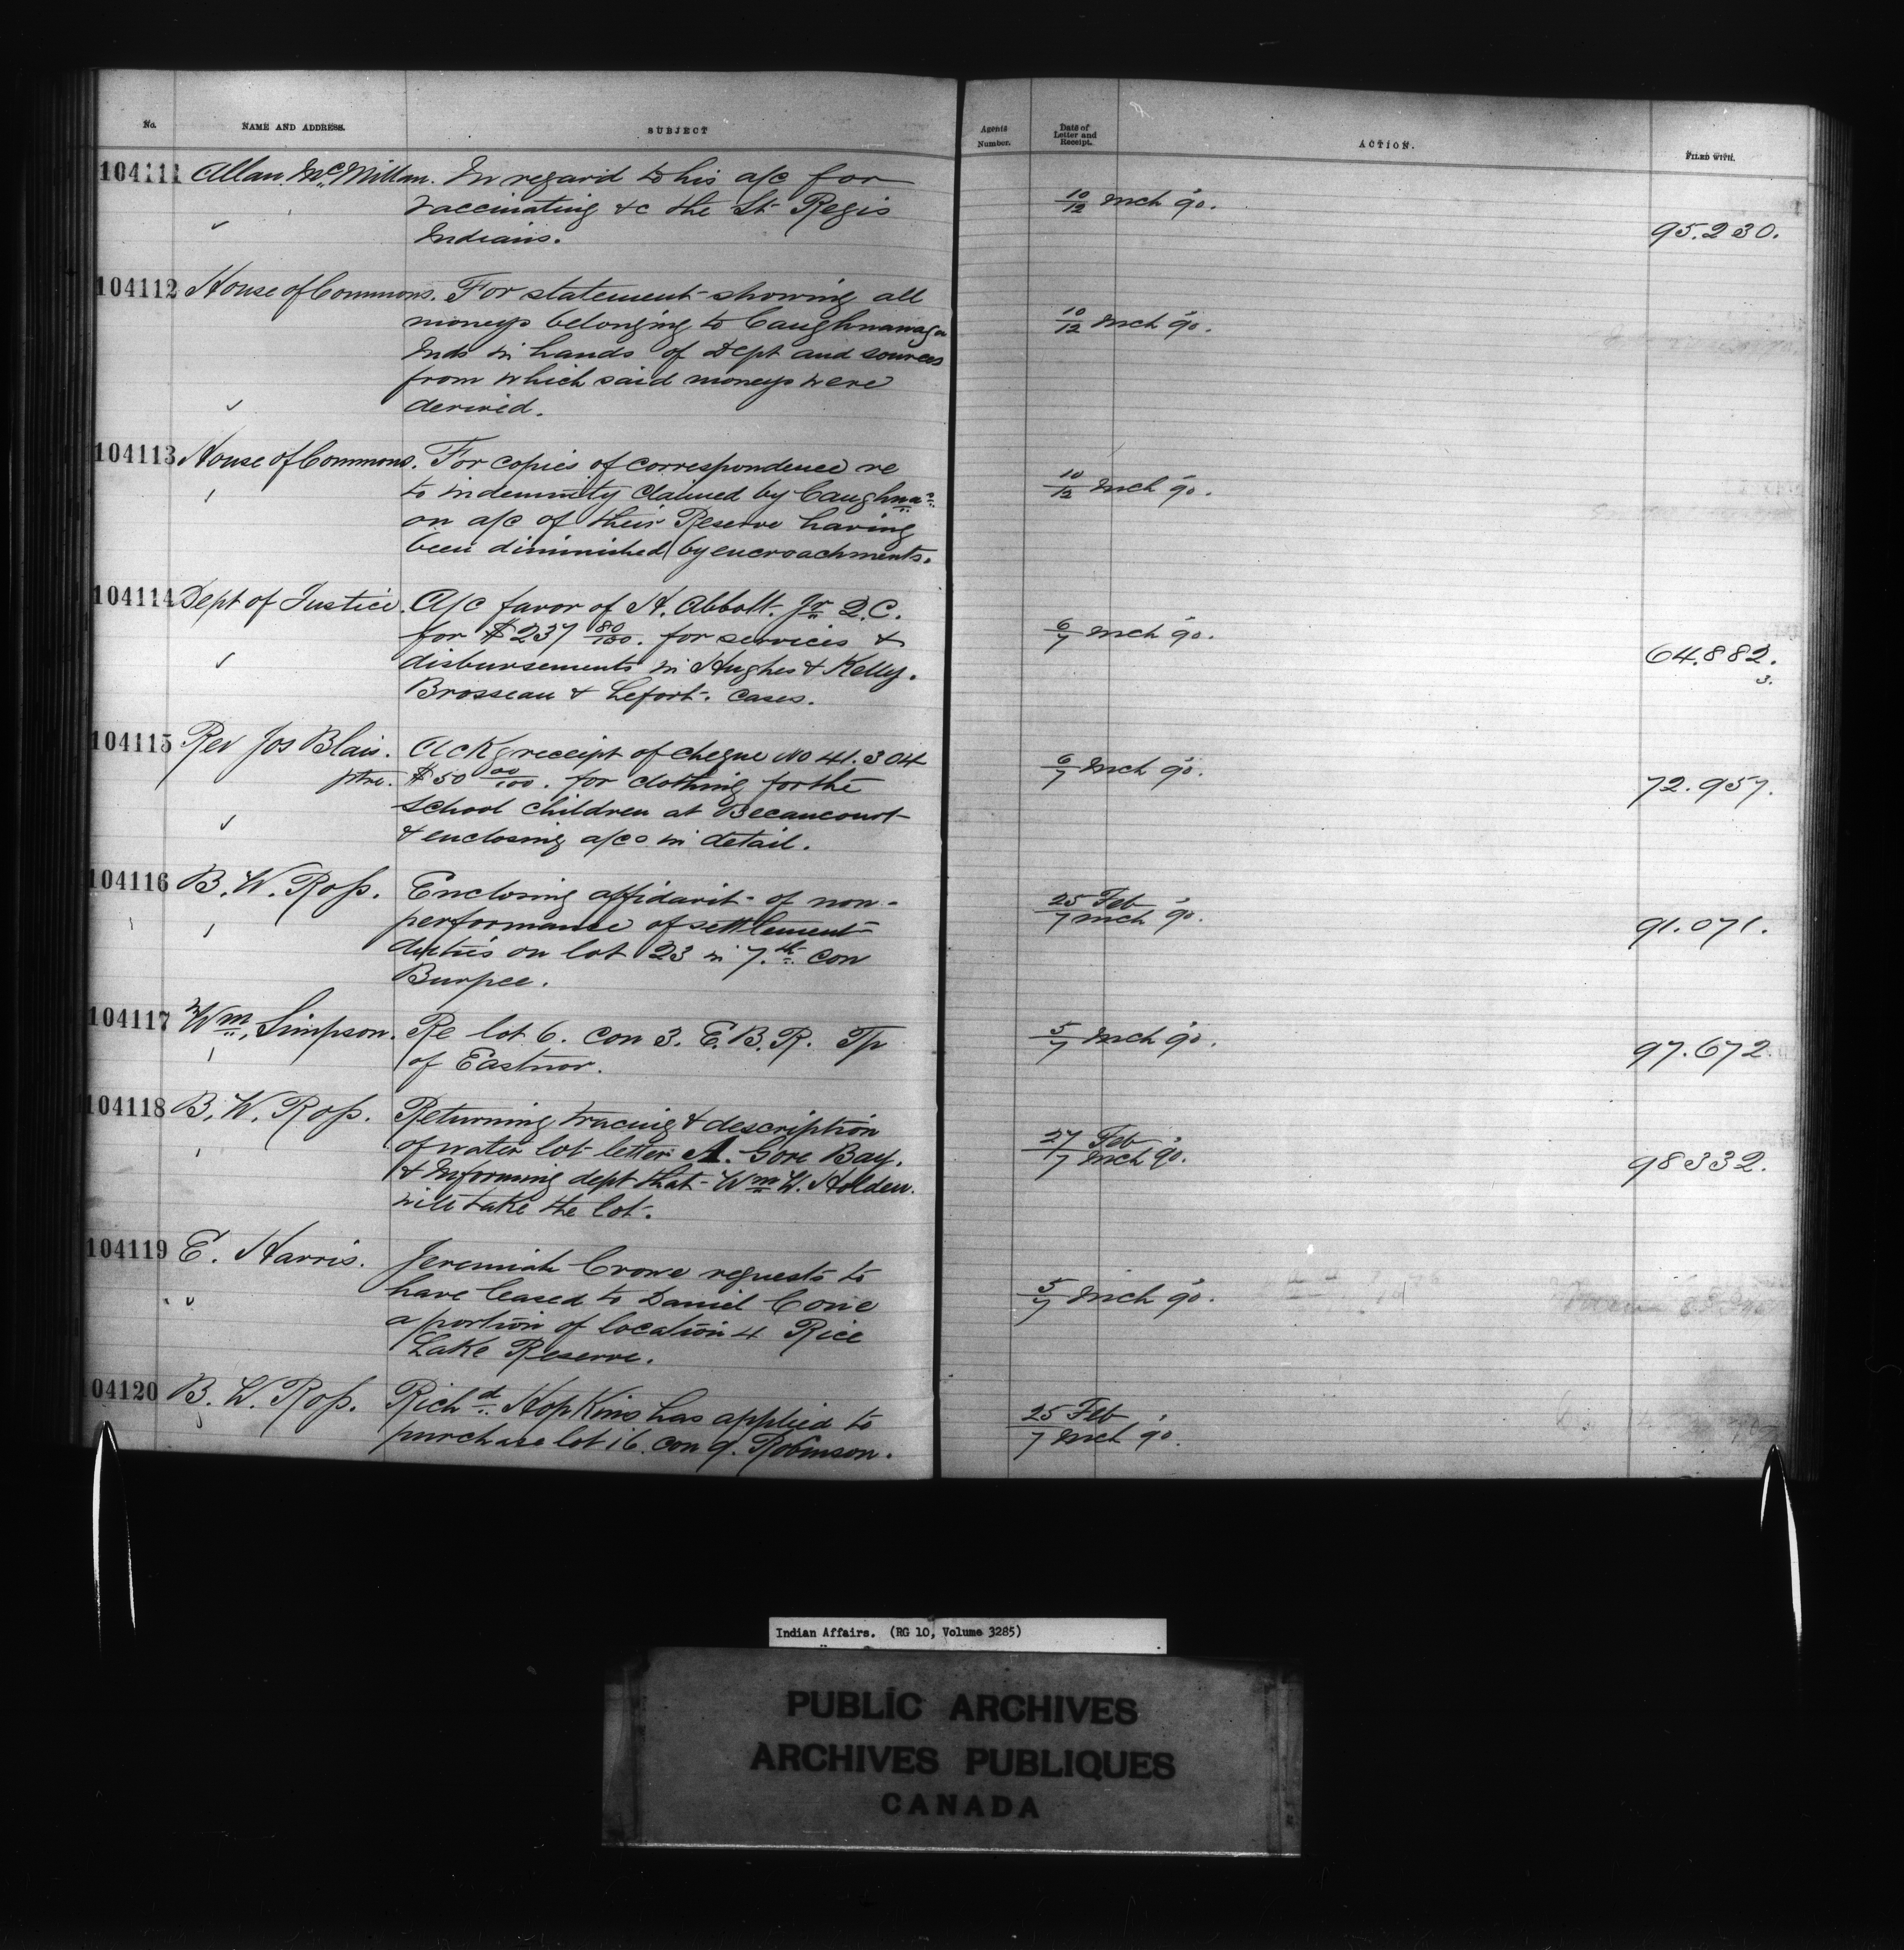 No. NAME AND ADDRESS. SUBJECT Agents Number. Date of Letter and Receipt. ACTION. FILED WITH.
104111 Allan McMillan. In regard to his a/c for
vaccinating &c the St Regis
Indians.
10/12 Mch 90.
95.230.
104112 House of Commons. For statement showing all
moneys belonging to Caughnawaga
Inds in hands of Dept and sources
from which said moneys were
derived.
10/12 Mch 90.
104113 House of Commons. For copies of correspondence re
to indemnity claimed by Caughna
on a/c of their Reserve having
been diminished by encroachments.
10/12 Mch 90.
104114 Dept of Justice. A/c favor of H. Abbott. Jr Q.C.
for $237 80/100. for services &
disbursements in Hughes & Kelly.
Brosseau & Lefort. cases.
6/7 Mch 90.
64.882.
3.
104115 Rev Jos Blais. Ackg receipt of cheque No 41.304
ptre. $50 00/100. for clothing for the
School children at Becancourt
& enclosing a/cs in detail.
6/7 Mch 90.
72.957.
104116 B. W. Ross. Enclosing affidavit of non-
performance of settlement
duties on lot 23 in 7.th con
Burpee.
25 Feb
7 Mch 90.
91.071.
104117 Wm, Simpson. Re lot 6. con 3. E.B.R. Tp
of Eastnor.
5/7 Mch 90.
97.672
104118 B. W. Ross. Returning tracing & description
of water lot letter A. Gore Bay.
& Informing dept that Wm W. Holden.
will take the lot.
27 Feb
7 Mch 90.
98332.
104119 E. Harris. Jeremiah Crowe requests to
have leased to Daniel Cone
a portion of location 4 Rice
Lake Reserve.
5/7 Mch 90.
04120 B. W. Ross. Richd Hopkins has applied to
purchase lot 16. con 9. Robinson.
25 Feb
7 Mch 90.
Indian Affairs. (RG 10, Volume 3285)
PUBLIC ARCHIVES
ARCHIVES PUBLIQUES
CANADA